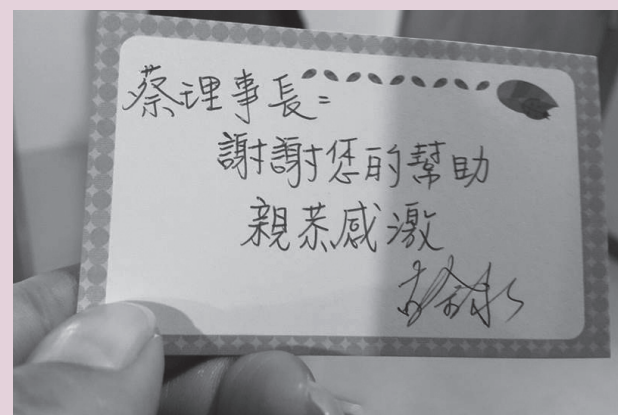 蔡理事長:
謝謝您的幫助
親恭感激